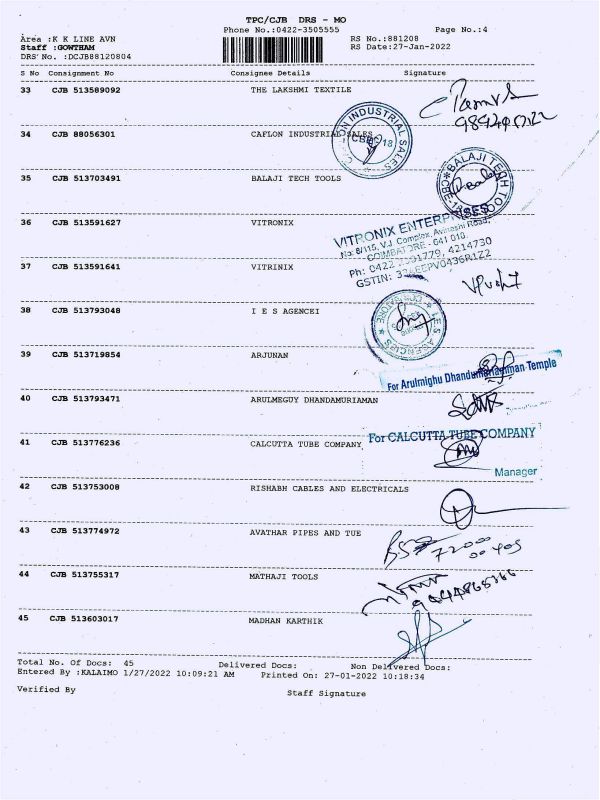 TPC/CJB DRS - MO
Phone No.:0422-3505555 Page No.:4
Area :K K LINE AVN RS No.:881208
Staff :GOWTHAM RS Date:27-Jan-2022
DRS No. :DCJB88120804
S No Consignment No Consignee Details Signature
33 CJB 513589092 THE LAKSHMI TEXTILE
34 CJB 88056301 CAFLON INDUSTRIAL SALES
INDUSTRIAL SALES
35 CJB 513703491 BALAJI TECH TOOLS
BALAJI TECH TOOLS
36 CJB 513591627 VITRONIX
VITRONIX ENTERPRISES
No: 8/115, V.J. Complex, Avinashi Road,
COIMBATORE - 641 018.
37 CJB 513591641 VITRINIX
38 CJB 513793048 I E S AGENCEI
I.E.S AGENCIES COIMBATORE
39 CJB 513719854 ARJUNAN
For Arulmighu Dhandumariamman Temple
40 CJB 513793471 ARULMEGUY DHANDAMURIAMAN
41 CJB 513776236 CALCUTTA TUBE COMPANY
For CALCUTTA TUBE COMPANY
Manager
42 CJB 513753008 RISHABH CABLES AND ELECTRICALS
43 CJB 513774972 AVATHAR PIPES AND TUE
44 CJB 513755317 MATHAJI TOOLS
45 CJB 513603017 MADHAN KARTHIK
Total No. Of Docs: 45 Delivered Docs: Non Delivered Docs:
Entered By :KALAIMO 1/27/2022 10:09:21 AM Printed On: 27-01-2022 10:18:34
Verified By Staff Signature